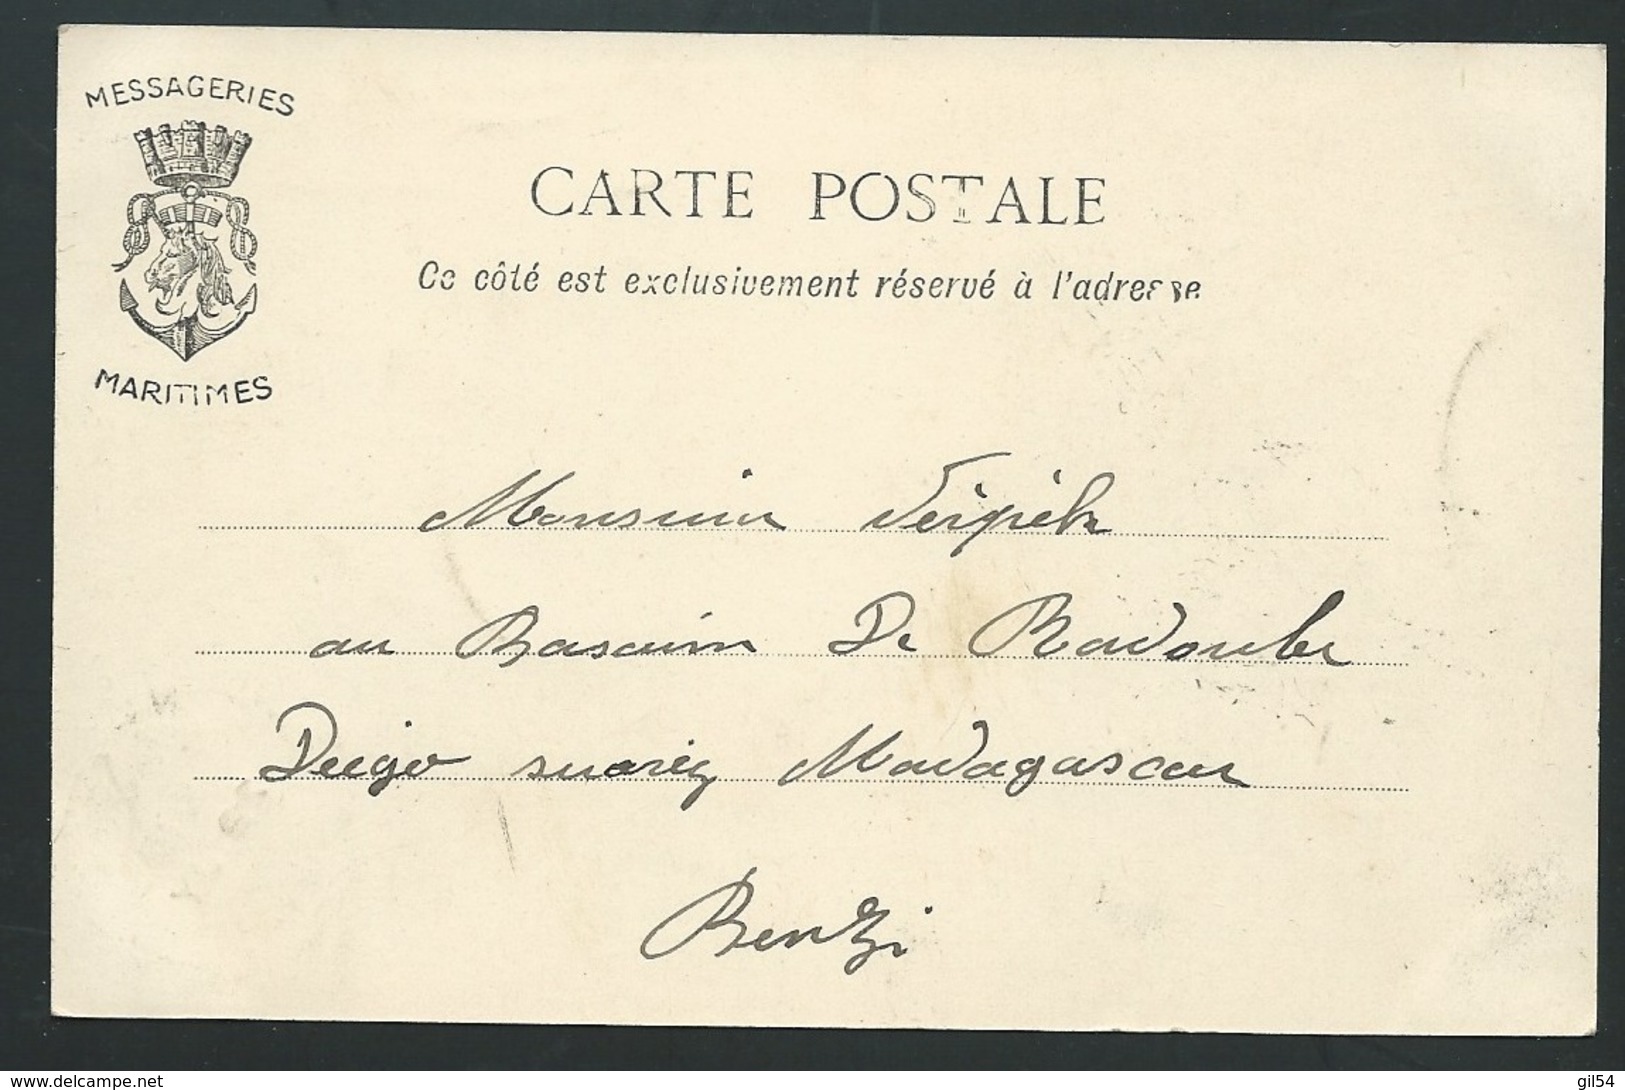 MESSAGERIES
MARITIMES
CARTE POSTALE
Ce côté est exclusivement réservé à l'adresse
Monsieur
au Bassin De Radoube
Diego suarez Madagascar
Renzi
delcampe.net
gil54